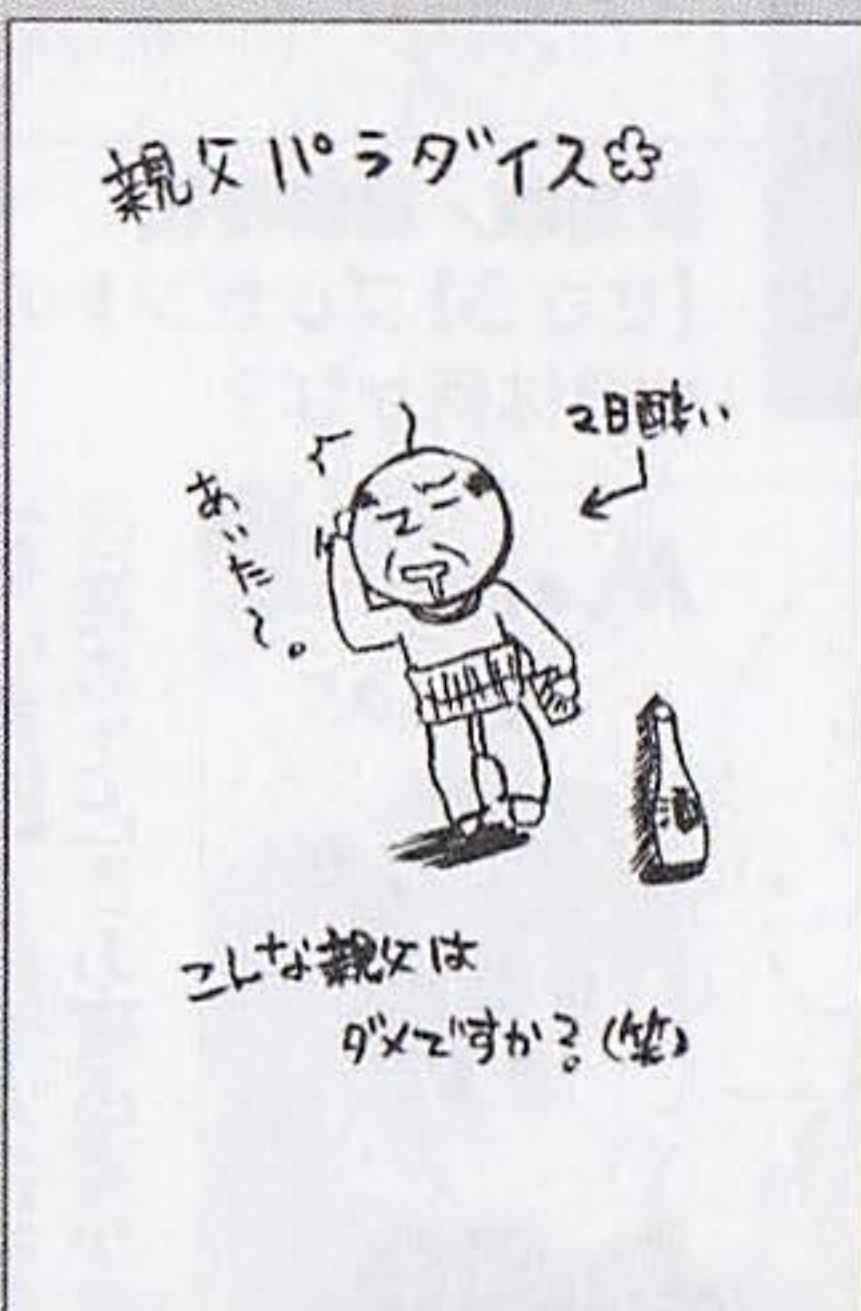 親父パラダイス
2日酔い
あいた〜。
酒
こんな親父は
ダメですか?(笑)